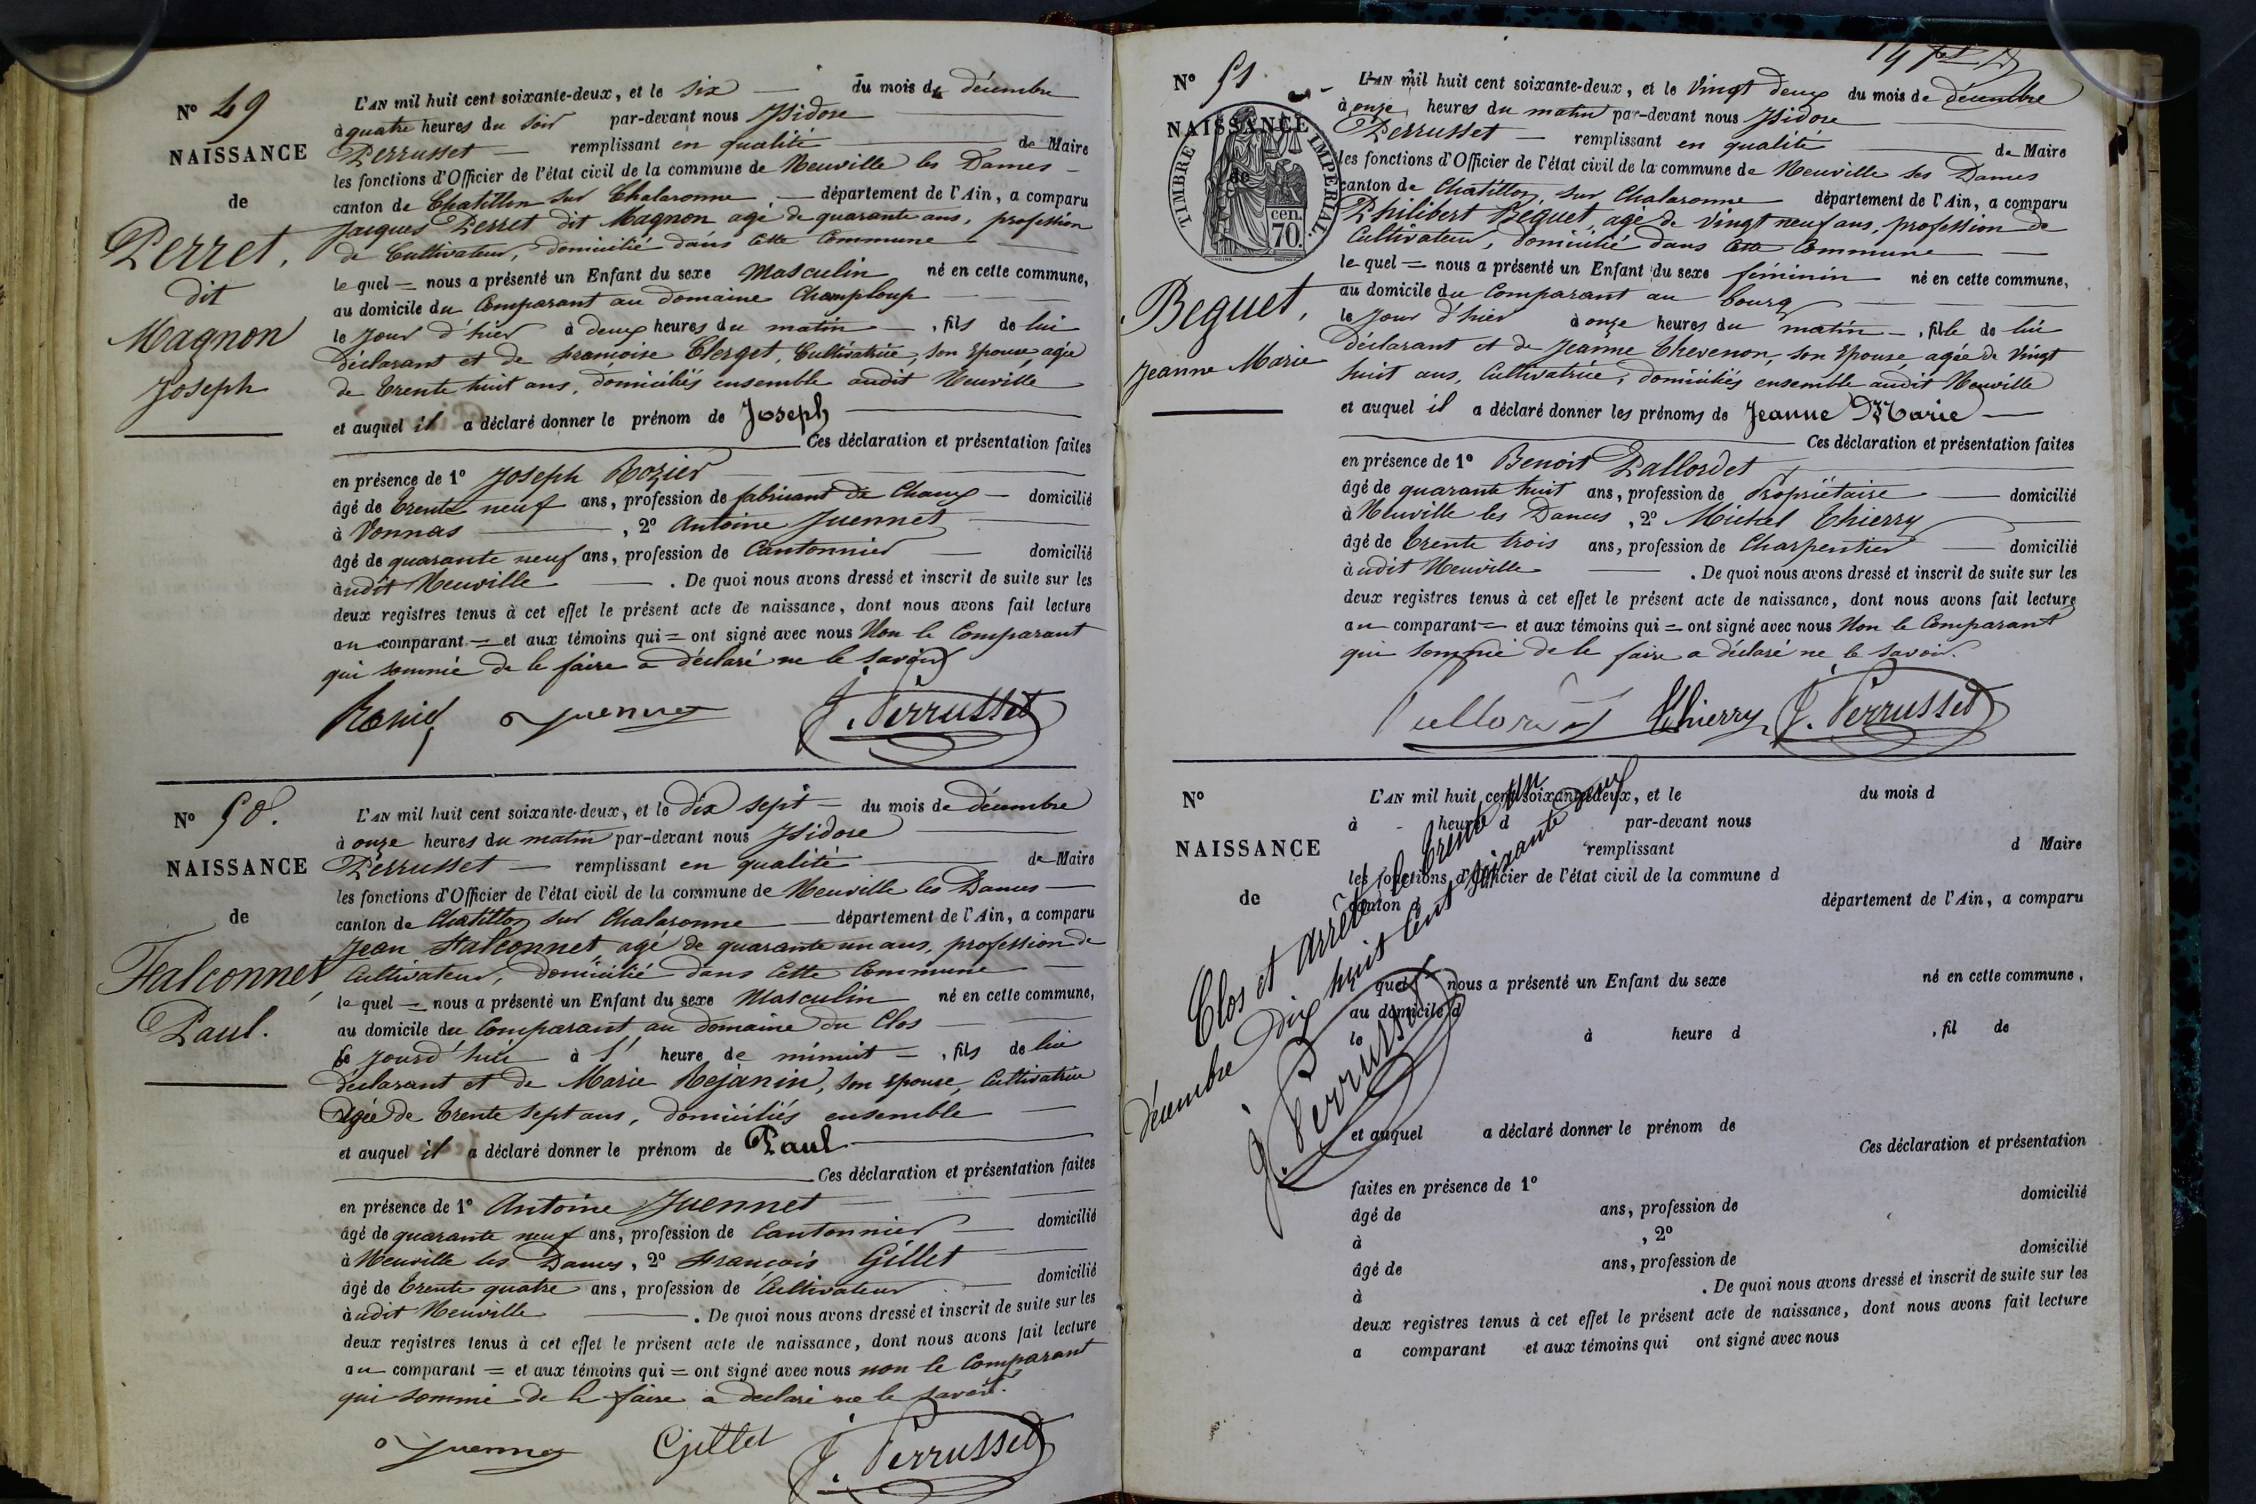 N° 49
NAISSANCE
de
Perret,
dit
Magnon
Joseph
L'AN mil huit cent soixante-deux, et le six du mois de décembre
à quatre heures du soir par-devant nous Isidore
Perrusset remplissant en qualité de Maire
les fonctions d'Officier de l'état civil de la commune de Neuville les Dames
canton de Chatillon sur Chalaronne département de l'Ain, a comparu
Jacques Perret dit Magnon agé de quarante ans, profession
de Cultivateur, domicilié dans cette Commune
le quel = nous a présenté un Enfant du sexe Masculin né en cette commune,
au domicile du Comparant au domaine Champloup
le jour d'hier à deux heures du matin , fils de lui
déclarant et de francoise Clerget, Cultivatrice, son Epouse, agée
de trente huit ans, domiciliés ensemble audit Neuville
et auquel il a déclaré donner le prénom de Joseph
Ces déclaration et présentation faites
en présence de 1° Joseph Rozier
âgé de trente neuf ans, profession de fabricant de Chaux domicilié
à Vonnas , 2° Antoine Juennet
âgé de quarante neuf ans, profession de Cantonnier domicilié
à udit Neuville . De quoi nous avons dressé et inscrit de suite sur les
deux registres tenus à cet effet le présent acte de naissance, dont nous avons fait lecture
au comparant = et aux témoins qui = ont signé avec nous Non le Comparant
qui sommé de le faire a déclaré ne le savoir
Juennet J. Perrusset
N° 50.
NAISSANCE
de
Falconnet,
Paul.
L'AN mil huit cent soixante-deux, et le dix sept du mois de décembre
à onze heures du matin par-devant nous Isidore
Perrusset remplissant en qualité de Maire
les fonctions d'Officier de l'état civil de la commune de Neuville les Dames
canton de Chatillon sur Chalaronne département de l'Ain, a comparu
Jean Falconnet agé de quarante un ans, profession de
Cultivateur, domicilié dans Cette Commune
le quel = nous a présenté un Enfant du sexe Masculin né en cette commune,
au domicile du Comparant au domaine du Clos
le jourd'hui à heure de minuit , fils de lui
déclarant et de Marie Rejanin, son Epouse, Cultivatrice
agée de trente sept ans, domiciliés ensemble
et auquel il a déclaré donner le prénom de Paul
Ces déclaration et présentation faites
en présence de 1° Antoine Juennet
âgé de quarante neuf ans, profession de Cantonnier domicilié
à Neuville les Dames, 2° François Gillet
âgé de trente quatre ans, profession de Cultivateur domicilié
à udit Neuville . De quoi nous avons dressé et inscrit de suite sur les
deux registres tenus à cet effet le présent acte de naissance, dont nous avons fait lecture
au comparant = et aux témoins qui = ont signé avec nous non le Comparant
qui sommé de le faire a declaré ne le savoir.
Juennet Gillet J. Perrusset
N° 51.
NAISSANCE
de
TIMBRE IMPERIAL.
cen.
70.
Beguet,
Jeanne Marie
L'AN mil huit cent soixante-deux, et le vingt deux du mois de décembre
à onze heures du matin par-devant nous Isidore
Perrusset remplissant en qualité de Maire
les fonctions d'Officier de l'état civil de la commune de Neuville les Dames
canton de Chatillon sur Chalaronne département de l'Ain, a comparu
Philibert Béguet, agé de vingt neuf ans, profession de
Cultivateur, domicilié dans cette Commune
le quel = nous a présenté un Enfant du sexe féminin né en cette commune,
au domicile du Comparant au bourg
le jour d'hier à onze heures du matin , fille de lui
déclarant et de Jeanne Thevenon, son Epouse, agée de vingt
huit ans, Cultivatrice, domiciliés ensemble audit Neuville
et auquel il a déclaré donner les prénoms de Jeanne Marie
Ces déclaration et présentation faites
en présence de 1° Benoit Pallordet
âgé de quarante huit ans, profession de Propriétaire domicilié
à Neuville les Dames , 2° Michel Thierry
âgé de trente trois ans, profession de Charpentier domicilié
à udit Neuville . De quoi nous avons dressé et inscrit de suite sur les
deux registres tenus à cet effet le présent acte de naissance, dont nous avons fait lecture
au comparant = et aux témoins qui = ont signé avec nous Non le Comparant
qui sommé de le faire a déclaré ne le savoir.
Thierry J. Perrusset
N°
NAISSANCE
de
L'AN mil huit cent soixante-deux, et le du mois d
à heure d par-devant nous
remplissant d Maire
les fonctions d'Officier de l'état civil de la commune d
canton d département de l'Ain, a comparu
quel nous a présenté un Enfant du sexe né en cette commune,
au domicile d
le à heure d , fil de
et auquel a déclaré donner le prénom de
Ces déclaration et présentation
faites en présence de 1°
âgé de ans, profession de domicilié
à , 2°
âgé de ans, profession de domicilié
à . De quoi nous avons dressé et inscrit de suite sur les
deux registres tenus à cet effet le présent acte de naissance, dont nous avons fait lecture
a comparant et aux témoins qui ont signé avec nous
Clos et arrêté le trente un
décembre dix huit Cent soixante deux
J. Perrusset